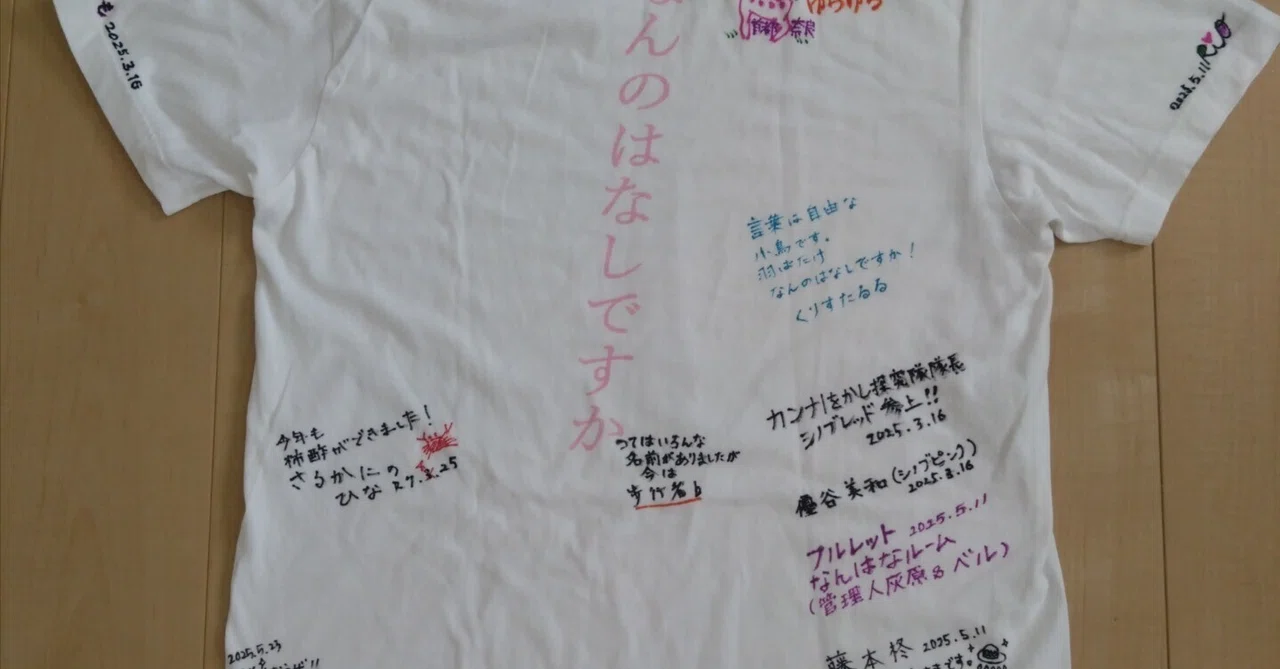 なんのはなしですか
2025.3.16
ゆらゆら
奈良
2025.5.11 Rio
言葉は自由な
小鳥です。
羽ばたけ
なんのはなしですか！
くりすたるる
カンナをかし探究隊隊長
シノブレッド 参上!!
2025.3.16
優谷美和(シノブピンク)
2025.3.16
プルレット 2025.5.11
なんはなルーム
(管理人灰原&ベル)
藤本柊 2025.5.11
です。
今年も
柿酢ができました！
さるかにの
ひな R7.3.25
つてはいろんな
名前がありましたが
今は
歩行者b
2025.5.23